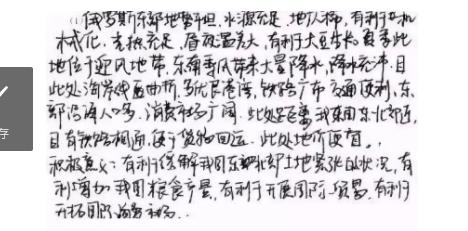 (1)俄罗斯东部地势平坦，水源充足，地广人稀，有利于机
械化，光板充足，昼夜温差大，有利于大豆生长。夏季此
地位于迎风地带，东南季风带来大量降水，降水充沛。且
此处海岸线曲折，多优良港湾，铁路广布交通便利，东
部沿海人口多，消费市场广阔。此处距离我国东北部近，
且有铁路相通，便于货物回运。此处地价便宜。
积极意义：有利于缓解我国东部北部土地紧张的状况，有
利增加我国粮食产量，有利于开展国际贸易，有利于
开拓国际海外市场。
存